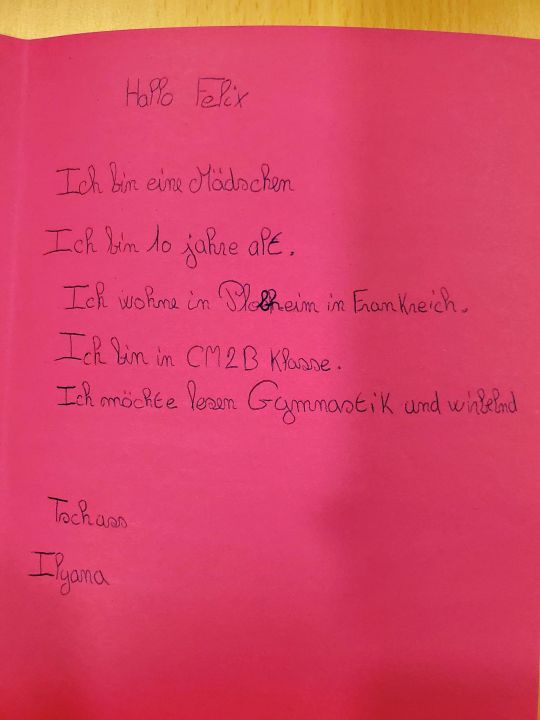 Hallo Felix
Ich bin eine Mädschen
Ich bin 10 jahre alt.
Ich wohne in Plobheim in Frankreich.
Ich bin in CM2B Klasse.
Ich möchte lesen Gymnastik und wirbelnd
Tschass
Ilyana